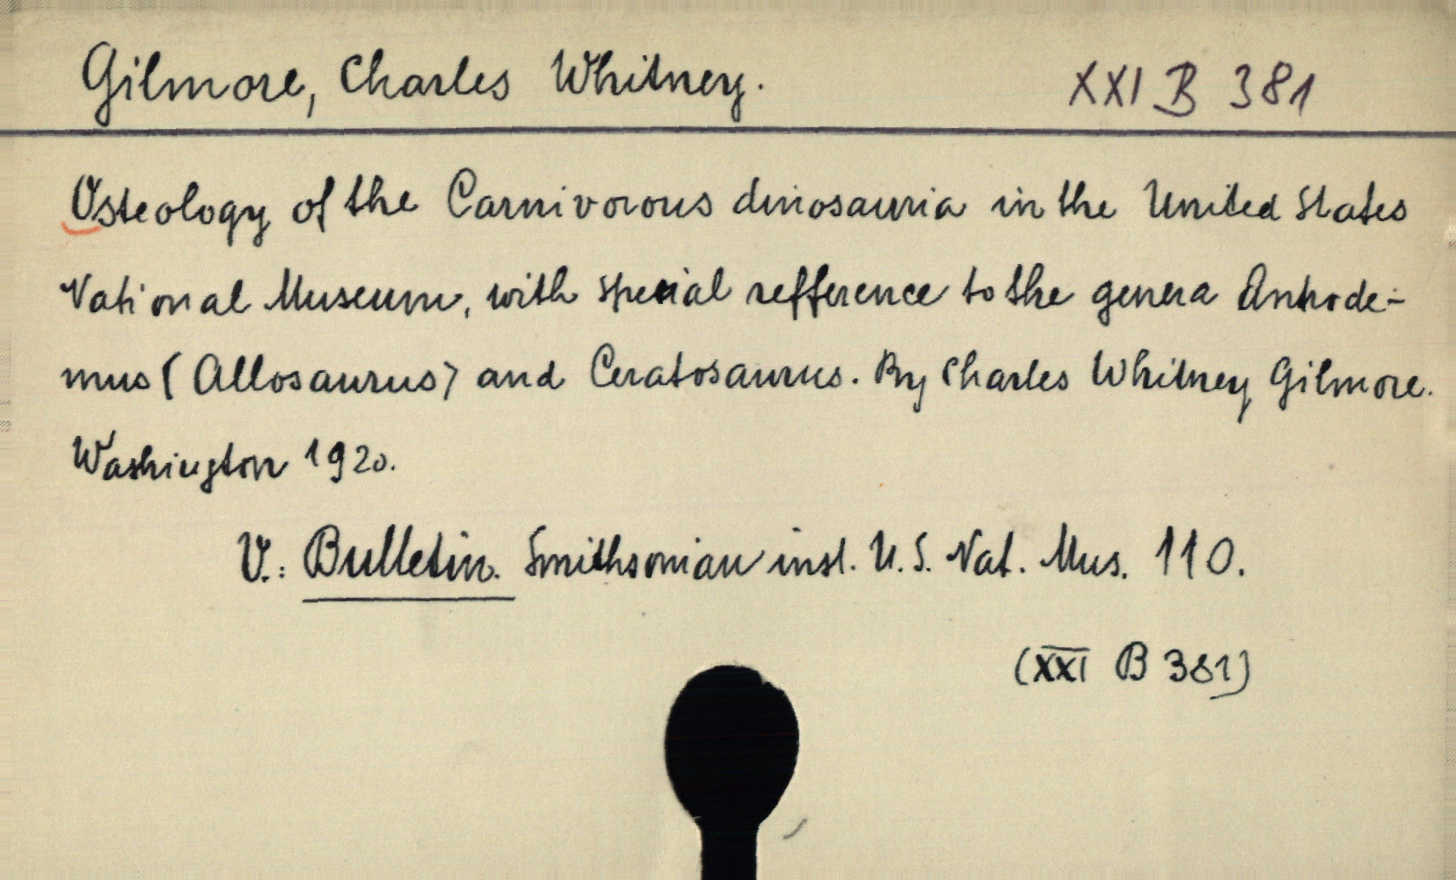 Gilmore, Charles Whitney. XXI B 381
Osteology of the Carnivorous dinosauria in the United States
National Museum, with special refference to the genera Antrode-
mus (Allosaurus) and Ceratosaurus. By Charles Whitney Gilmore.
Washington 1920.
V.: Bulletin. Smithsonian inst. U.S. Nat. Mus. 110.
(XXI B 381)